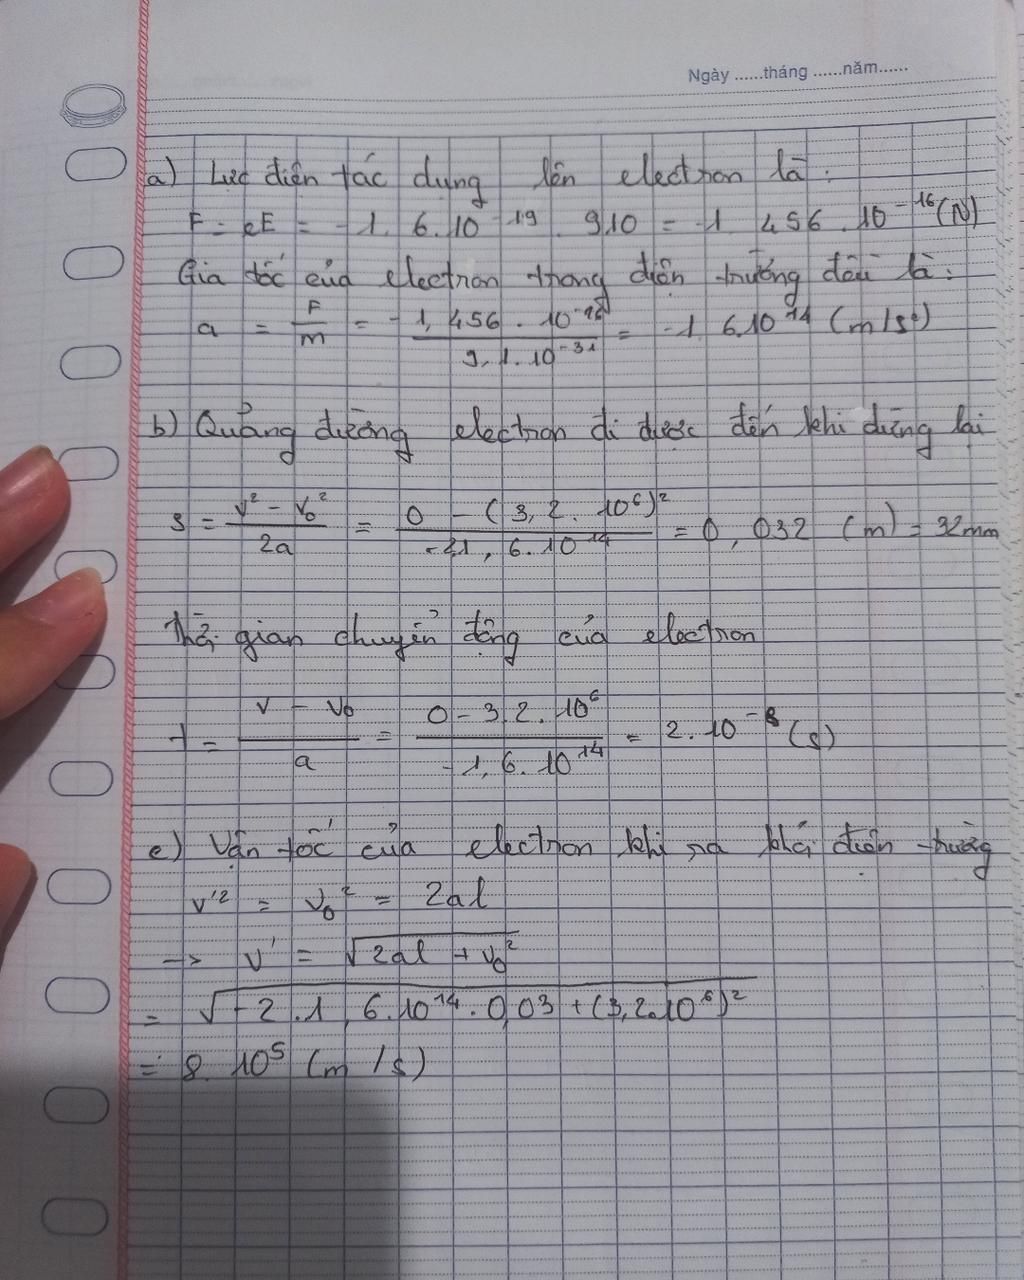 Ngày ......tháng ......năm......
a) Lực điện tác dụng lên electron là:
F = eE = -1,6.10⁻¹⁹.910 = -1,456.10⁻¹⁶(N)
Gia tốc của electron trong điện trường đều là:
a = F/m = -1,456.10⁻¹⁶/9,1.10⁻³¹ = -1,6.10¹⁴ (m/s²)
b) Quảng đường electron đi được đến khi dừng lại
s = (v² - v₀²)/2a = (0 - (3,2.10⁶)²)/-2.1,6.10¹⁴ = 0,032 (m) = 32mm
Thời gian chuyển động của electron
t = (v - v₀)/a = (0 - 3,2.10⁶)/-1,6.10¹⁴ = 2.10⁻⁸(s)
c) Vận tốc của electron khi ra khỏi điện trường
v'² = v₀² = 2al
-> v' = √(2al + v₀²)
= √(-2.1,6.10¹⁴.0,03 + (3,2.10⁶)²)
= 8.10⁵ (m/s)